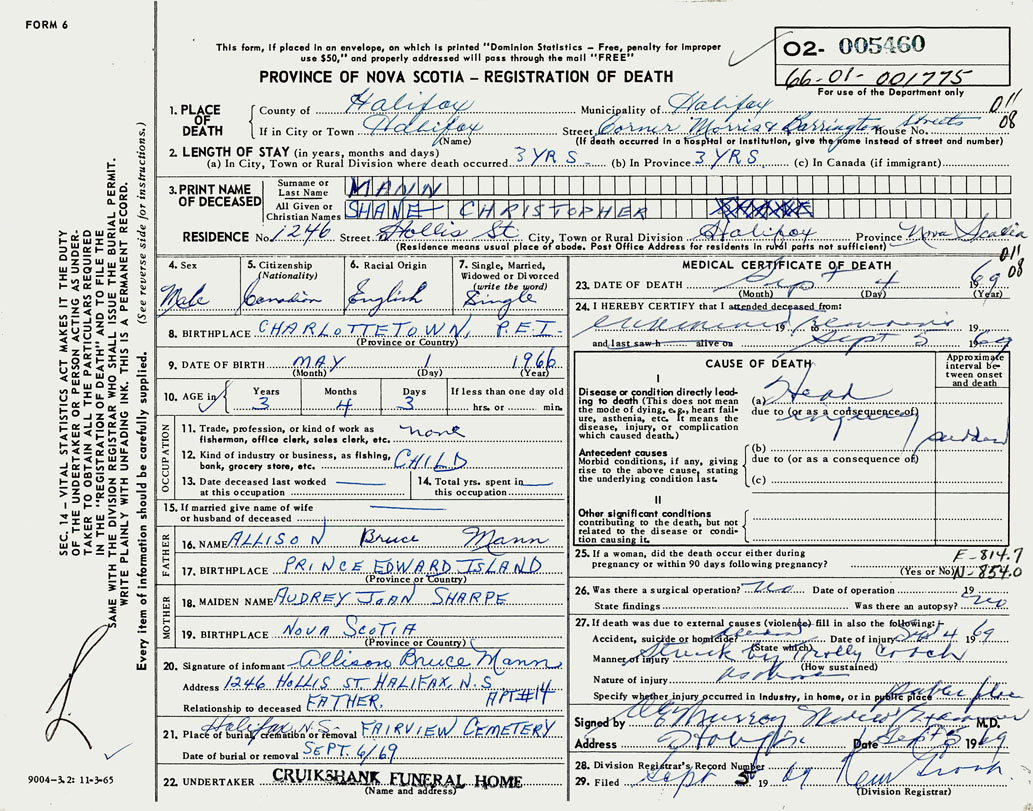 FORM 6
This form, if placed in an envelope, on which is printed "Dominion Statistics – Free, penalty for improper
use $50," and properly addressed will pass through the mail "FREE"
PROVINCE OF NOVA SCOTIA – REGISTRATION OF DEATH
02- 005460
66-01-001775
For use of the Department only
011
08
1. PLACE OF DEATH
County of Halifax Municipality of Halifax
If in City or Town Halifax Street Corner Morris & Barrington Streets House No.
(Name) (If death occurred in a hospital or institution, give the name instead of street and number)
2. LENGTH OF STAY (in years, months and days)
(a) In City, Town or Rural Division where death occurred 3 YRS. (b) In Province 3 YRS (c) In Canada (if immigrant)
3. PRINT NAME OF DECEASED
Surname or Last Name MANN
All Given or Christian Names SHANE CHRISTOPHER
RESIDENCE No. 1246 Street Hollis St. City, Town or Rural Division Halifax Province Nova Scotia
(Residence means usual place of abode. Post Office Address for residents in rural parts not sufficient)
011
08
4. Sex
Male
5. Citizenship (Nationality)
Canadian
6. Racial Origin
English
7. Single, Married, Widowed or Divorced (write the word)
Single
8. BIRTHPLACE CHARLOTTETOWN, P.E.I.
(Province or Country)
9. DATE OF BIRTH MAY 1 1966
(Month) (Day) (Year)
10. AGE in Years Months Days If less than one day old
3 4 3 hrs. or min.
OCCUPATION
11. Trade, profession, or kind of work as
fisherman, office clerk, sales clerk, etc. none
12. Kind of industry or business, as fishing,
bank, grocery store, etc. CHILD
13. Date deceased last worked
at this occupation
14. Total yrs. spent in
this occupation
15. If married give name of wife
or husband of deceased
FATHER
16. NAME ALLISON Bruce Mann
17. BIRTHPLACE PRINCE EDWARD ISLAND
(Province or Country)
MOTHER
18. MAIDEN NAME AUDREY JOAN SHARPE
19. BIRTHPLACE NOVA SCOTIA
(Province or Country)
20. Signature of informant Allison Bruce Mann
Address 1246 HOLLIS ST. HALIFAX, N.S. APT#14
Relationship to deceased FATHER.
21. Place of burial, cremation or removal Halifax, N.S. FAIRVIEW CEMETERY
Date of burial or removal SEPT. 6/69
22. UNDERTAKER CRUIKSHANK FUNERAL HOME
(Name and address)
MEDICAL CERTIFICATE OF DEATH
23. DATE OF DEATH Sept 4 1969
(Month) (Day) (Year)
24. I HEREBY CERTIFY that I attended deceased from:
19 to 19
and last saw h alive on Sept 5 1969
CAUSE OF DEATH
Approximate interval between onset and death
I
Disease or condition directly leading to death (This does not mean the mode of dying, e.g., heart failure, asthenia, etc. It means the disease, injury, or complication which caused death.)
(a) Head
due to (or as a consequence of)
injury
sudden
Antecedent causes
Morbid conditions, if any, giving rise to the above cause, stating the underlying condition last.
(b)
due to (or as a consequence of)
(c)
II
Other significant conditions
contributing to the death, but not related to the disease or condition causing it.
25. If a woman, did the death occur either during
pregnancy or within 90 days following pregnancy? (Yes or No)
E-814.7
N-854.0
26. Was there a surgical operation? no Date of operation 19
State findings Was there an autopsy? no
27. If death was due to external causes (violence) fill in also the following:
Accident, suicide or homicide? Date of injury Sept 4 1969
(State which)
Manner of injury Struck by Trolly Coach
(How sustained)
Nature of injury as above
Specify whether injury occurred in industry, in home, or in public place Public place
Signed by Murray M.D.
Address Date Sept 5 1969
28. Division Registrar's Record Number
29. Filed Sept 5 19 69
(Division Registrar)
SEC. 14 – VITAL STATISTICS ACT MAKES IT THE DUTY
OF THE UNDERTAKER OR PERSON ACTING AS UNDER-
TAKER TO OBTAIN ALL THE PARTICULARS REQUIRED
IN THE "REGISTRATION OF DEATH" AND TO FILE THE
SAME WITH THE DIVISION REGISTRAR WHO SHALL ISSUE THE BURIAL PERMIT.
WRITE PLAINLY WITH UNFADING INK. THIS IS A PERMANENT RECORD.
Every item of information should be carefully supplied. (See reverse side for instructions.)
9004-3.2: 11-3-65